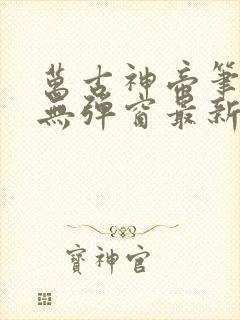 萬古神帝筆
無彈窗最新
寶神官